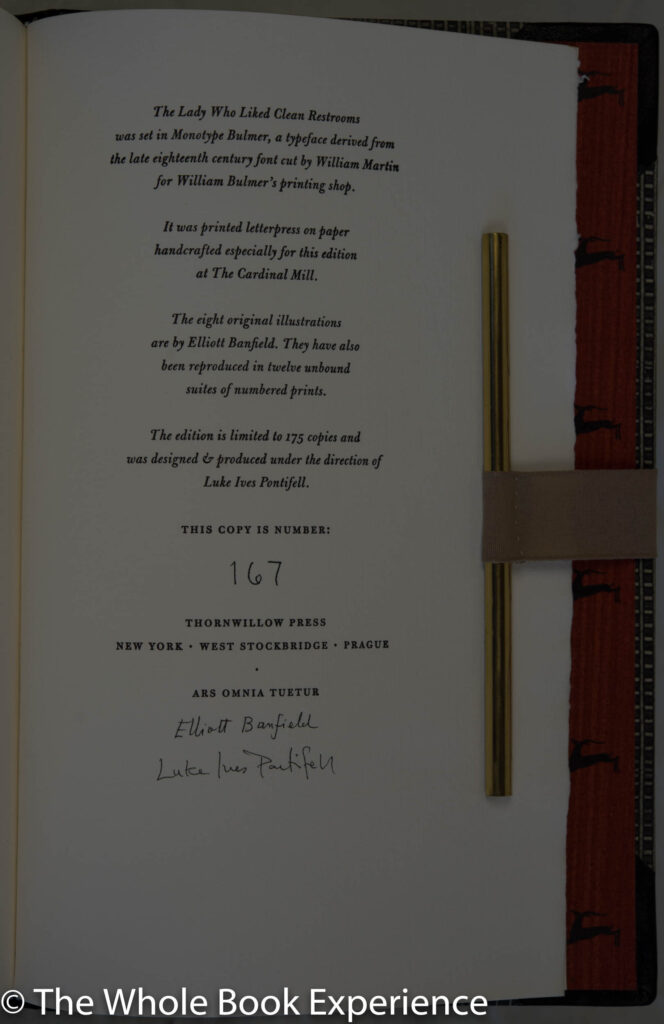 The Lady Who Liked Clean Restrooms
was set in Monotype Bulmer, a typeface derived from
the late eighteenth century font cut by William Martin
for William Bulmer's printing shop.
It was printed letterpress on paper
handcrafted especially for this edition
at The Cardinal Mill.
The eight original illustrations
are by Elliott Banfield. They have also
been reproduced in twelve unbound
suites of numbered prints.
The edition is limited to 175 copies and
was designed & produced under the direction of
Luke Ives Pontifell.
THIS COPY IS NUMBER:
167
THORNWILLOW PRESS
NEW YORK · WEST STOCKBRIDGE · PRAGUE
·
ARS OMNIA TUETUR
Elliott Banfield
Luke Ives Pontifell
© The Whole Book Experience